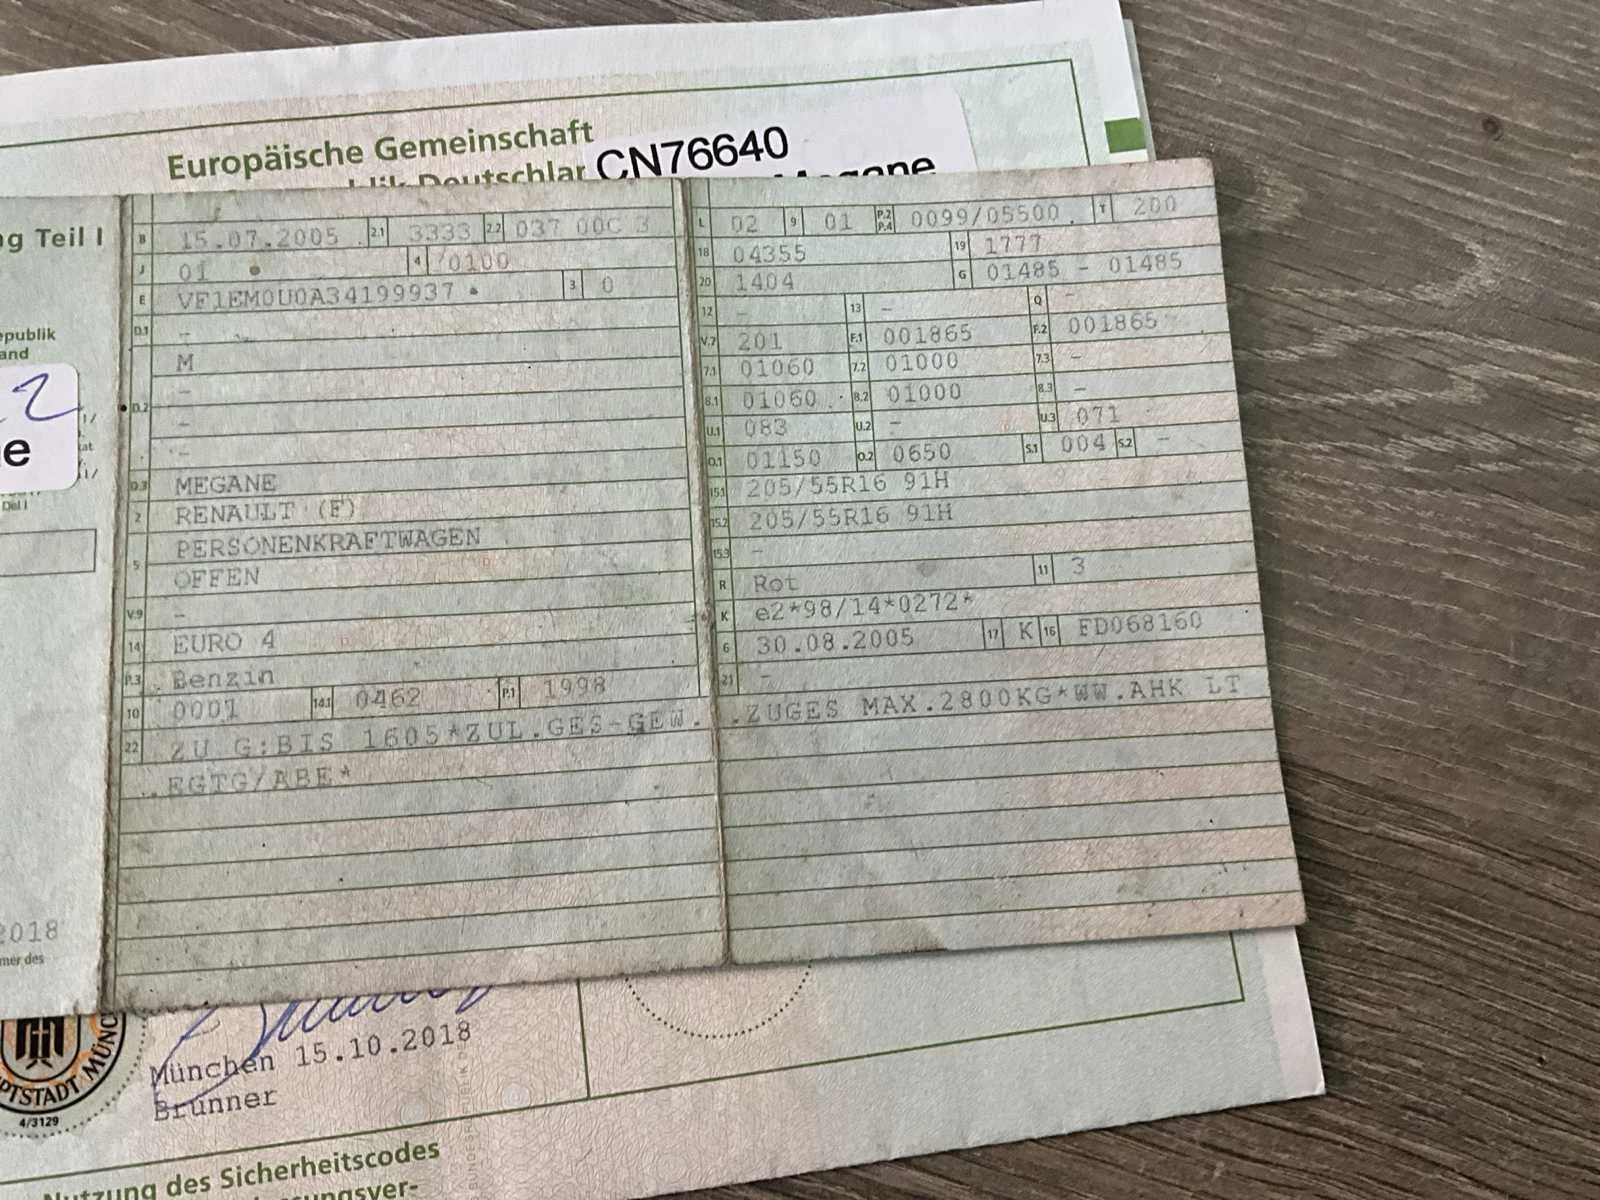 Europäische Gemeinschaft
CN76640
Megane
ng Teil I
epublik
and
e
2018
mer des
B 15.07.2005 2.1 3333 2.2 037 00C 3
J 01 4 0100
E VF1EM0U0A34199937 3 0
D.1 -
M
-
D.2 -
-
D.3 MEGANE
2 RENAULT (F)
5 PERSONENKRAFTWAGEN
OFFEN
V.9 -
14 EURO 4
P.3 Benzin
10 0001 14.1 0462 P.1 1998
22 ZU G:BIS 1605*ZUL.GES-GEW.
.EGTG/ABE*
L 02 9 01 P.2 P.4 0099/05500 T 200
18 04355 19 1777
20 1404 G 01485 - 01485
12 - 13 - Q -
V.7 201 F.1 001865 F.2 001865
7.1 01060 7.2 01000 7.3 -
8.1 01060 8.2 01000 8.3 -
U.1 083 U.2 - U.3 071
O.1 01150 O.2 0650 S.1 004 S.2 -
15.1 205/55R16 91H
15.2 205/55R16 91H
15.3 -
R Rot 11 3
K e2*98/14*0272*
6 30.08.2005 17 K 16 FD068160
21 -
.ZUGES MAX.2800KG*WW.AHK LT
München 15.10.2018
Brunner
PTSTADT MÜNC
4/3129
Nutzung des Sicherheitscodes